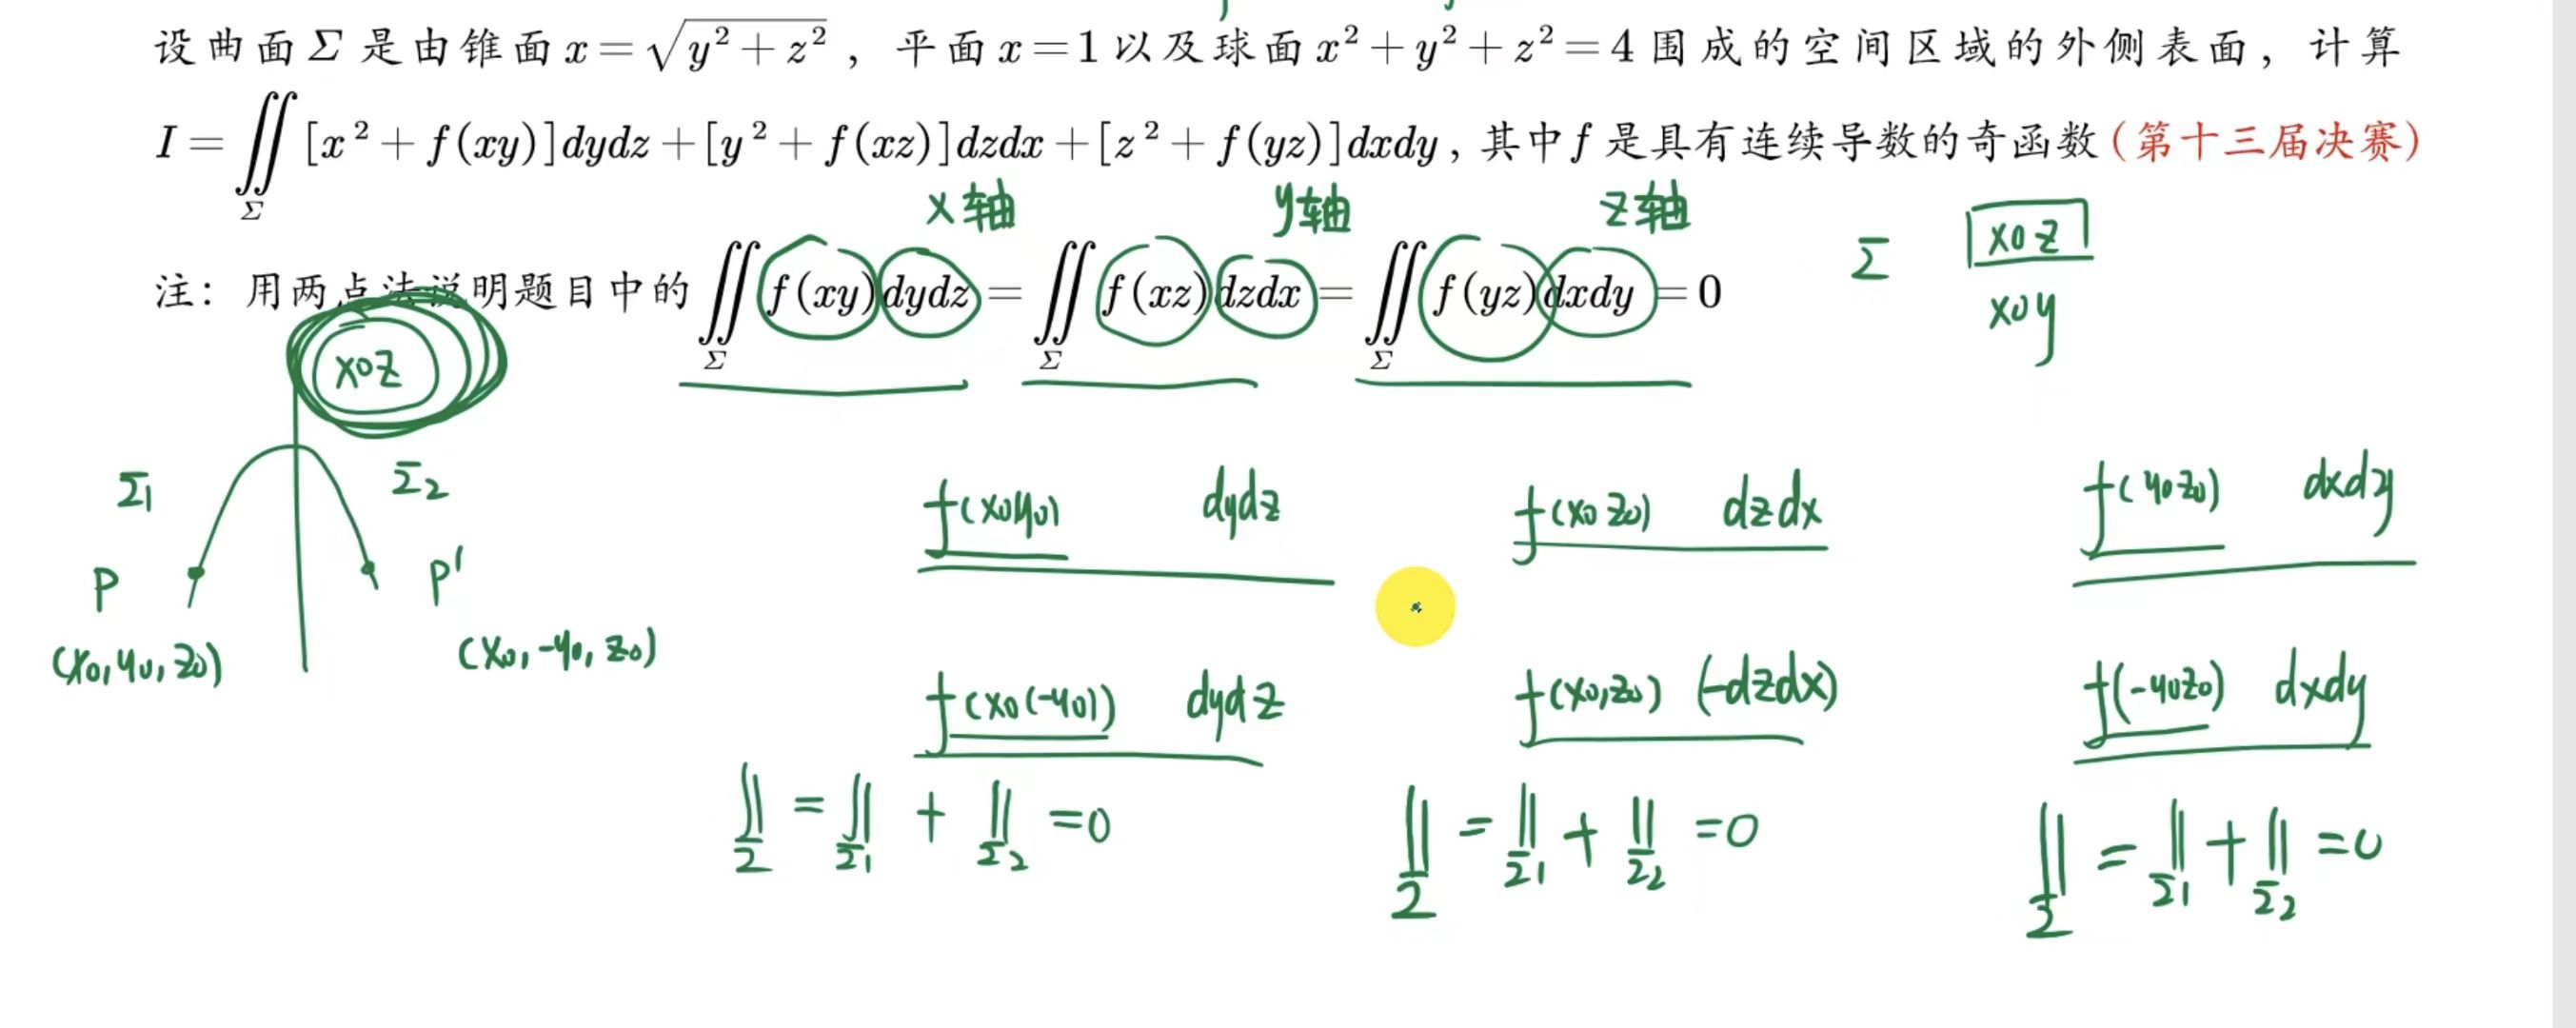 设曲面Σ是由锥面x=√(y²+z²)，平面x=1以及球面x²+y²+z²=4围成的空间区域的外侧表面，计算
I=∬_Σ [x²+f(xy)]dydz+[y²+f(xz)]dzdx+[z²+f(yz)]dxdy，其中f是具有连续导数的奇函数(第十三届决赛)
x轴 y轴 z轴
Σ xoz
xoy
注：用两点法说明题目中的∬_Σ f(xy)dydz=∬_Σ f(xz)dzdx=∬_Σ f(yz)dxdy=0
xoz
Σ1 Σ2
f(x0y0) dydz f(x0z0) dzdx f(y0z0) dxdy
P P'
(x0,y0,z0) (x0,-y0,z0)
f(x0(-y0)) dydz f(x0,z0) (-dzdx) f(-y0z0) dxdy
∬_Σ = ∬_Σ1 + ∬_Σ2 =0 ∬_Σ = ∬_Σ1 + ∬_Σ2 =0 ∬_Σ = ∬_Σ1 + ∬_Σ2 =0